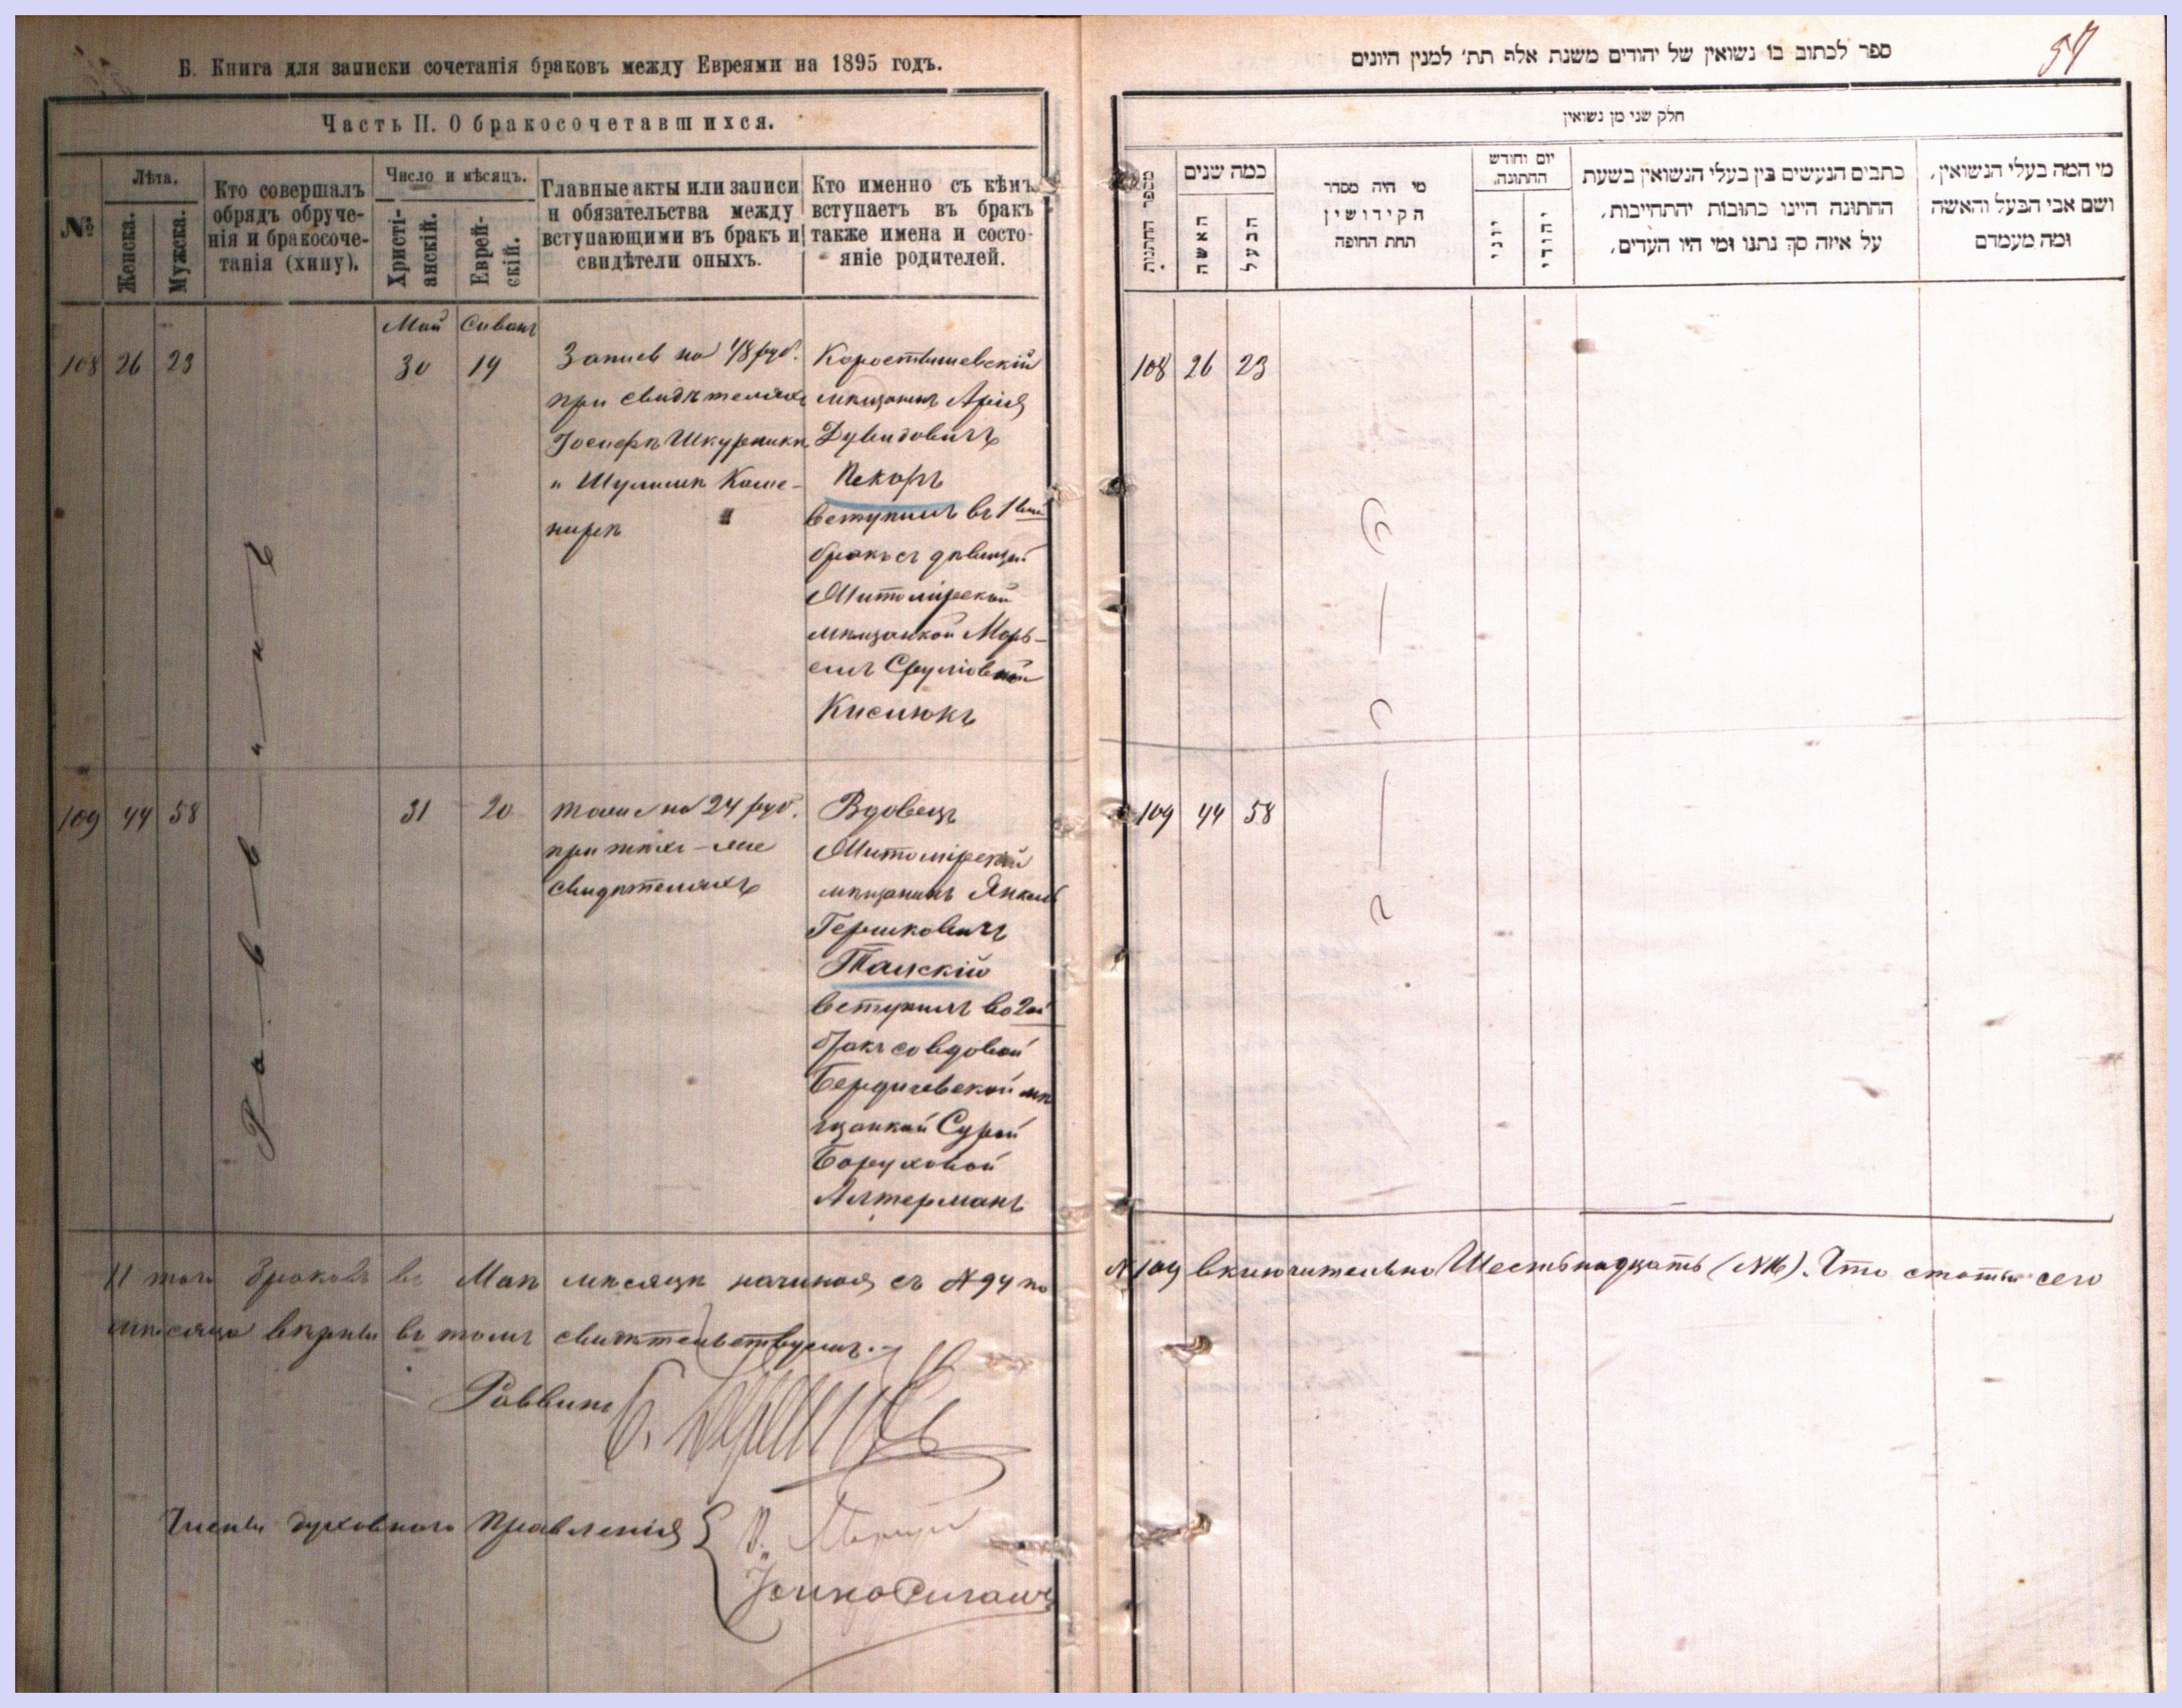 Б. Книга для записки сочетанія браковъ между Евреями на 1895 годъ.
Часть II. О бракосочетавшихся.
№
Лѣта.
Женска.
Мужска.
Кто совершалъ
обрядъ обруче-
нія и бракосоче-
танія (хипу).
Число и мѣсяцъ.
Христі-
анскій.
Еврей-
скій.
Главные акты или записи
и обязательства между
вступающими въ бракъ и
свидѣтели оныхъ.
Кто именно съ кѣмъ
вступаетъ въ бракъ
также имена и состо-
яніе родителей.
Май Сиванъ
108 26 23
30 19
Запись на 48 руб.
при свидѣтеляхъ
Іосифѣ Шкурникѣ
и Шулимѣ Каме-
нирѣ
Коростышевскій
мѣщанинъ Арія
Дувидовичъ
Пекаръ
вступилъ въ 1ый
бракъ съ дѣвицей
Житомірской
мѣщанкой Марь-
емъ Сруліовной
Кисилюкъ
Раввинъ
109 44 58
31 20
тоже на 24 руб.
при тѣхъ-же
свидѣтеляхъ
Вдовецъ
Житомірскій
мѣщанинъ Янкель
Гершковичъ
Талскій
вступилъ во 2ой
бракъ со вдовой
Бердичевской мѣ
щанкой Сурой
Боруховой
Алтерманъ
Итого браковъ въ Маѣ мѣсяцѣ начиная съ №94 по
№109 включительно Шестьнадцать (№16). Что статьи сего
мѣсяца вѣрны въ томъ свидѣтельствуемъ.
Раввинъ
Члены духовнаго Правленія
57
ספר לכתוב בו נשואין של יהודים משנת אלף תת׳ למנין היונים
חלק שני מן נשואין
מספר החתונות
כמה שנים
האשה
הבעל
מי היה מסדר
הקידושין
תחת החופה
יום וחודש
החתונה.
יוני
יהודי
כתבים הנעשים בין בעלי הנשואין בשעת
החתונה היינו כתובות יהתחייבות,
על איזה סך נתנו ומי היו העדים,
מי המה בעלי הנשואין,
ושם אבי הבעל והאשה
ומה מעמדם
108 26 23
109 44 58